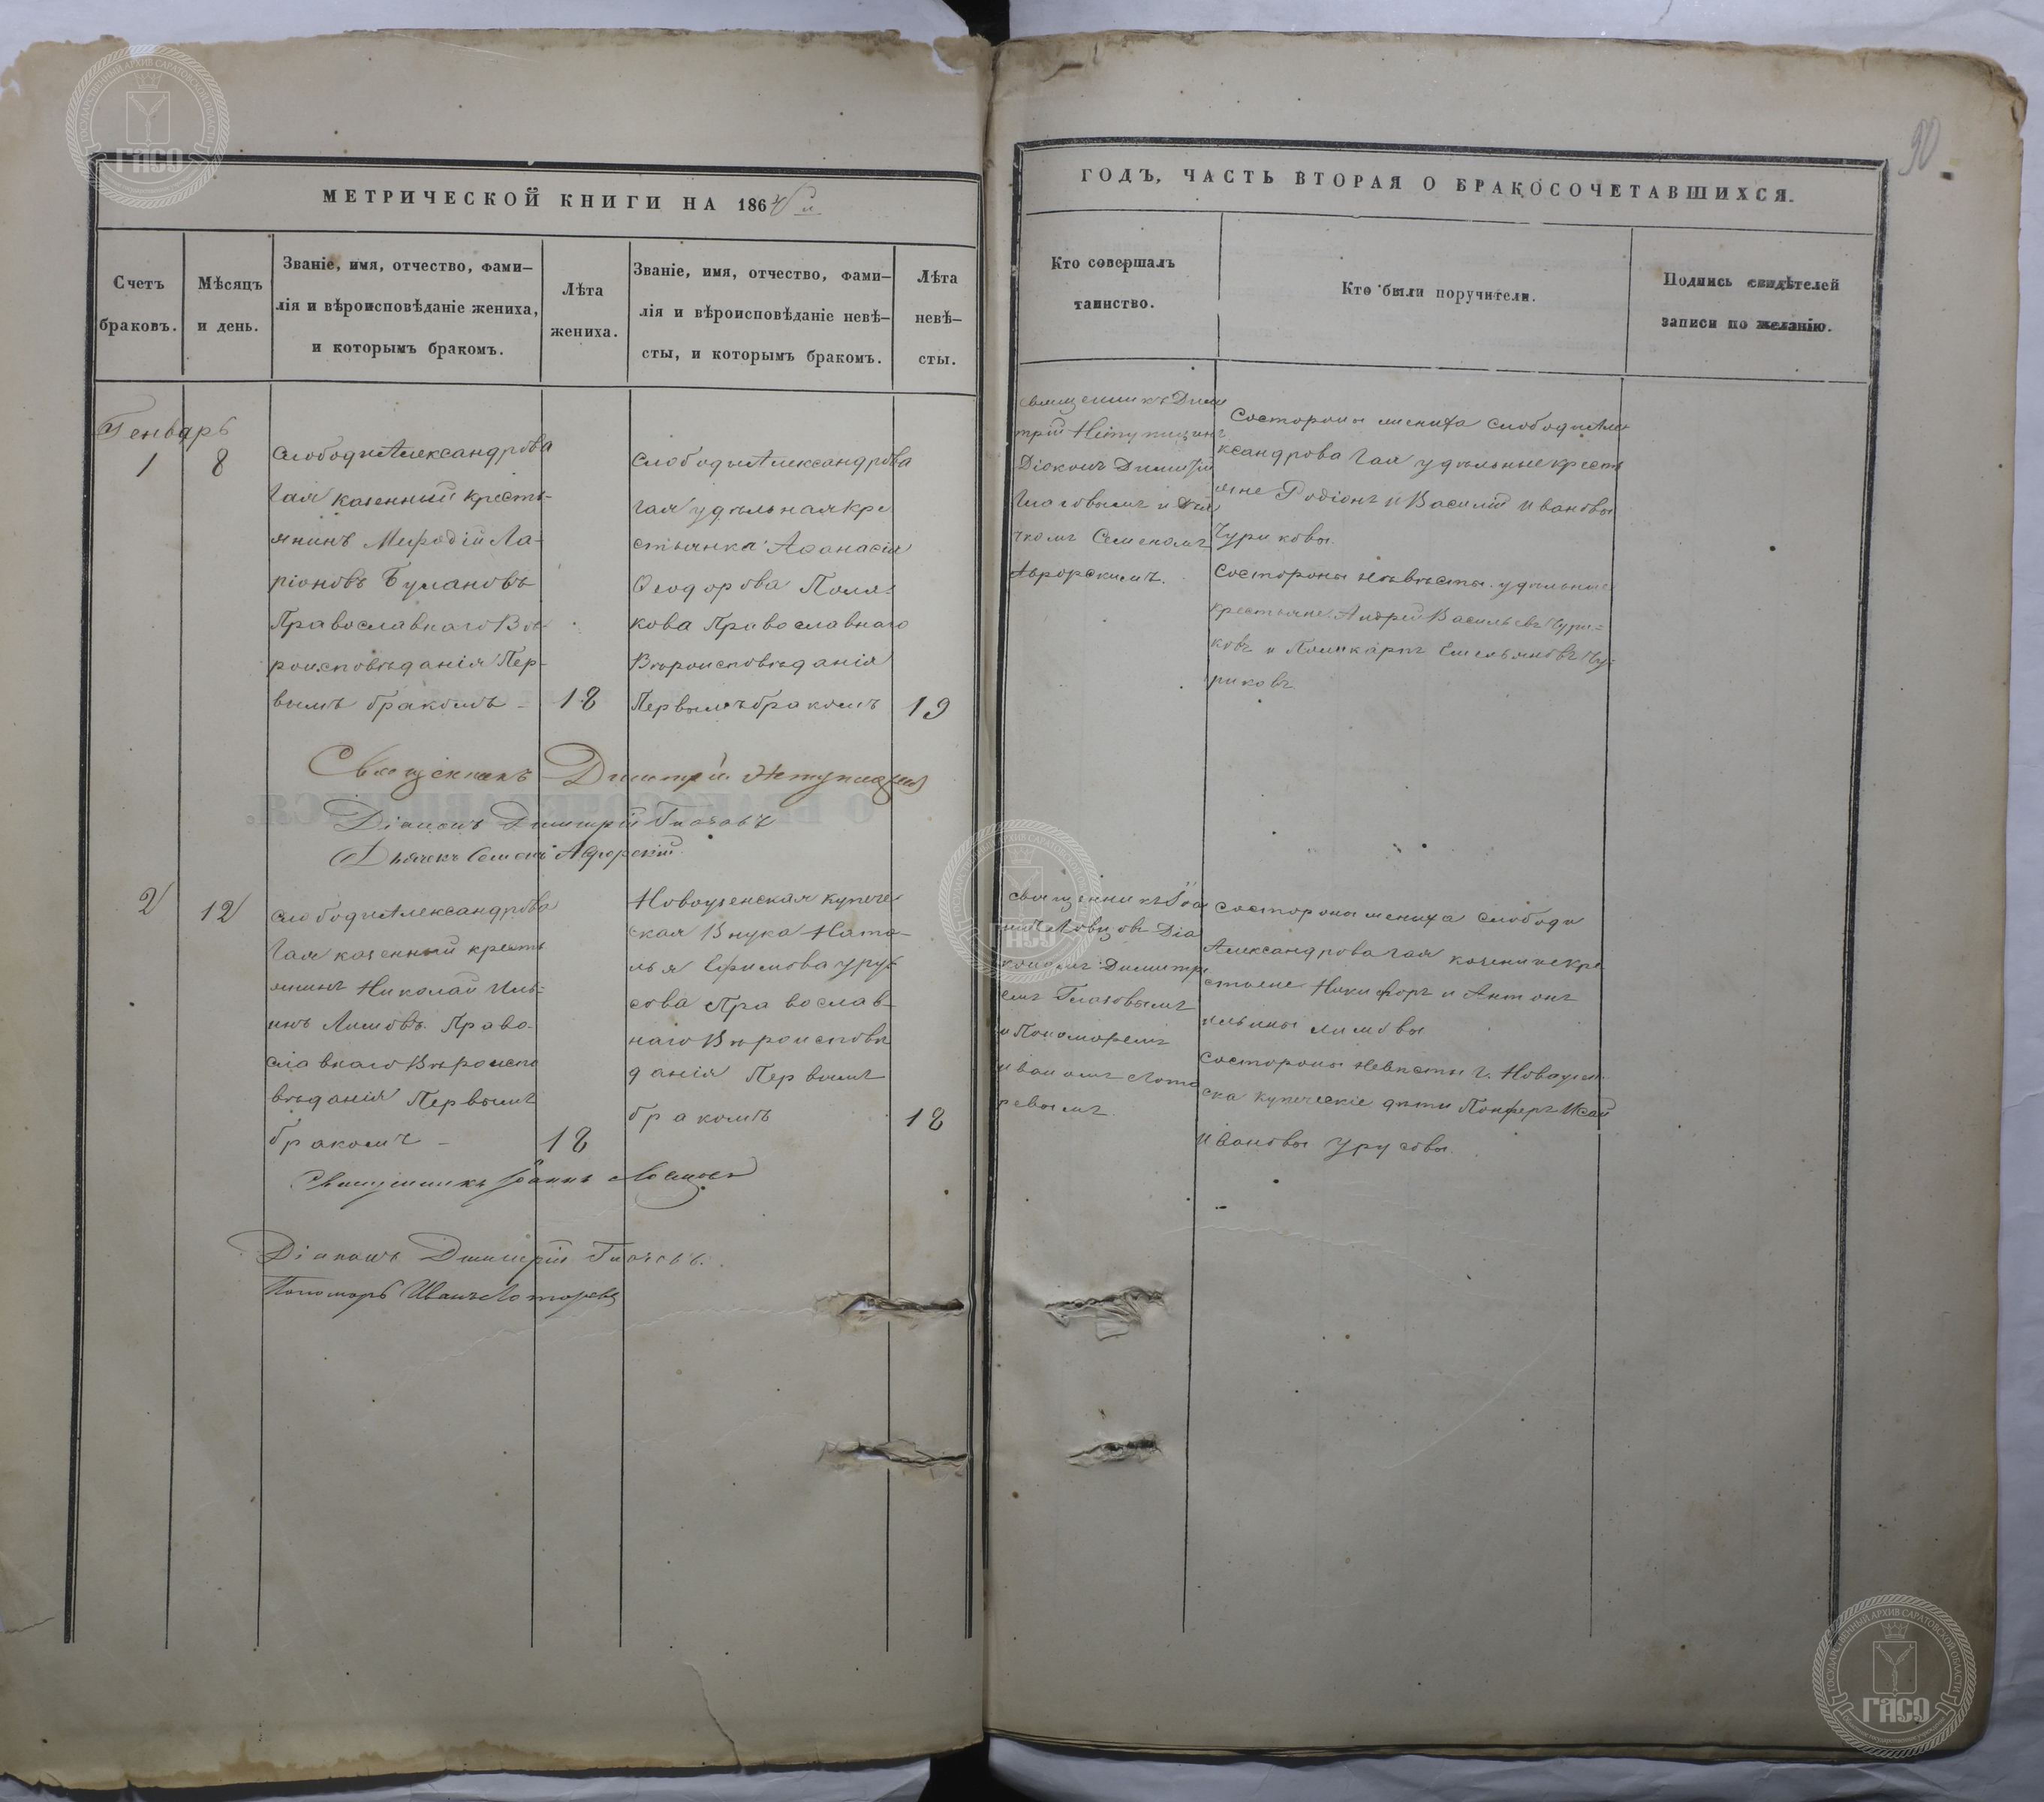 МЕТРИЧЕСКОЙ КНИГИ НА 186
ГОДЪ, ЧАСТЬ ВТОРАЯ О БРАКОСОЧЕТАВШИХСЯ.
90
Счетъ
браковъ.
Мѣсяцъ
и день.
Званіе, имя, отчество, фами-
лія и вѣроисповѣданіе жениха,
и которымъ бракомъ.
Лѣта
жениха.
Званіе, имя, отчество, фами-
лія и вѣроисповѣданіе невѣ-
сты, и которымъ бракомъ.
Лѣта
невѣ-
сты.
Кто совершалъ
таинство.
Кто были поручители.
Подпись свидѣтелей
записи по желанію.
Генварь
1
8
Слободы Александрова
Гая казенный кресть-
янинъ Мефодій Ла-
ріоновъ Булановъ
Православнаго Вѣ-
роисповѣданія Пер-
вымъ бракомъ -
18
Слободы Александрова
Гая удѣльная кре
стьянка Аѳанасія
Ѳеодорова Поля-
кова Православнаго
Вѣроисповѣданія
Первымъ бракомъ
19
Священникъ Дими
трій
Діаконъ Димитрій
Глаговымъ и Дья
чкомъ Семеномъ
Аврорскимъ.
Состороны жениха слободы Але
ксандрова Гая удѣльные кресть
яне Родіонъ и Василій Ивановы
Чуриковы.
Состороны невѣсты удѣльные
крестьяне Андрей Васильевъ Чури-
ковъ и Поликарпъ Емельяновъ Чу-
риковъ
Священникъ Димитрій
Діаконъ Димитрій
Дьячекъ Семенъ Аврорскій
2
12
Слободы Александрова
Гая казенный кресть
янинъ Николай Иль-
инъ Лимовъ. Право-
славнаго Вѣроиспо
вѣданія Первымъ
бракомъ -
18
Новоузенская купече
ская Внука Ната-
лья Ефимова Уру-
сова Православ-
наго Вѣроисповѣ
данія Первымъ
бракомъ
18
Священникъ Іоан
нъ Ловцовъ Діа
кономъ Димитрі
емъ Глаговымъ
и Пономоремъ
Иваномъ Лота
ревымъ.
Состороны жениха слободы
Александрова Гая казенные кре
стьяне Никифоръ и Антонъ
Ильины Лимовы
Состороны невѣсты г. Новоузен
ска купеческіе дѣти Исай
Ивановы Урусовы.
Священникъ Іоаннъ Ловцовъ
Діаконъ Димитрій
Пономарь Иванъ Лотаревъ
ГОСУДАРСТВЕННЫЙ АРХИВ САРАТОВСКОЙ ОБЛАСТИ
ГАСО